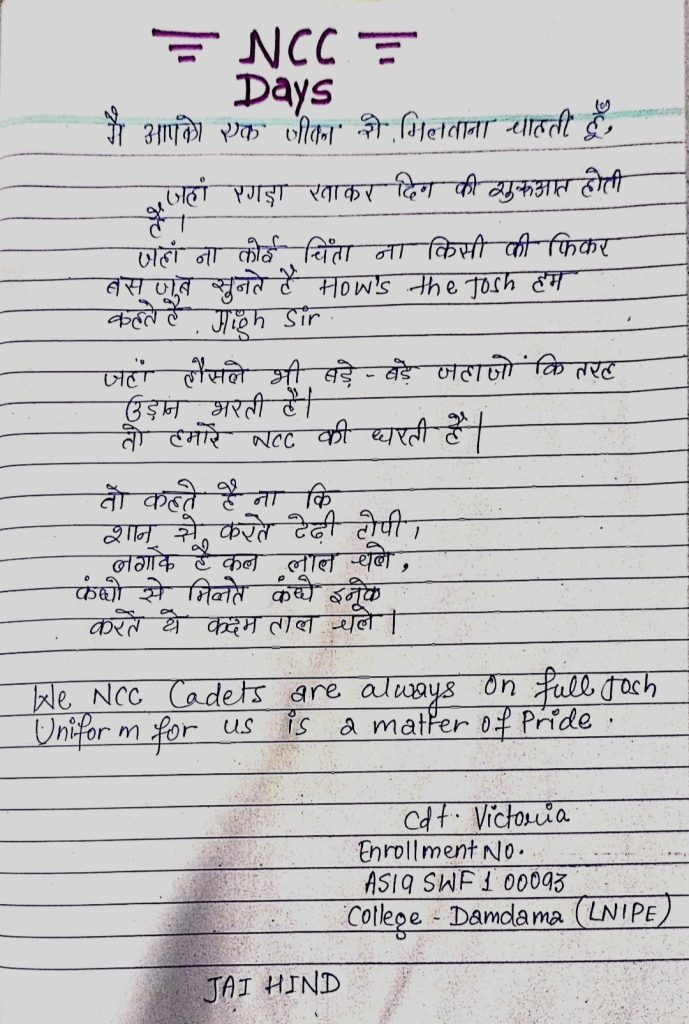 NCC
Days
मै आपको एक जीवन से मिलवाना चाहती हूँ,
जहां रगड़ा खाकर दिन की शुरुआत होती
है।
जहां ना कोई चिंता ना किसी की फिकर
बस जब सुनते है How's the Josh हम
कहते है, High Sir.
जहां हौसले भी बड़े - बड़े जहाजों कि तरह
उड़ान भरती है।
तो हमारे NCC की धरती है।
तो कहते है ना कि
शान से करते टेढी टोपी,
लगाके है कल लाल चले,
कंधो से मिलते कंधे इनके
करते ये कदम ताल चले।
We NCC Cadets are always on full Josh
Uniform for us is a matter of Pride.
Cdt. Victoria
Enrollment No.
AS19 SWF 1 00093
College - Damdama (LNIPE)
JAI HIND